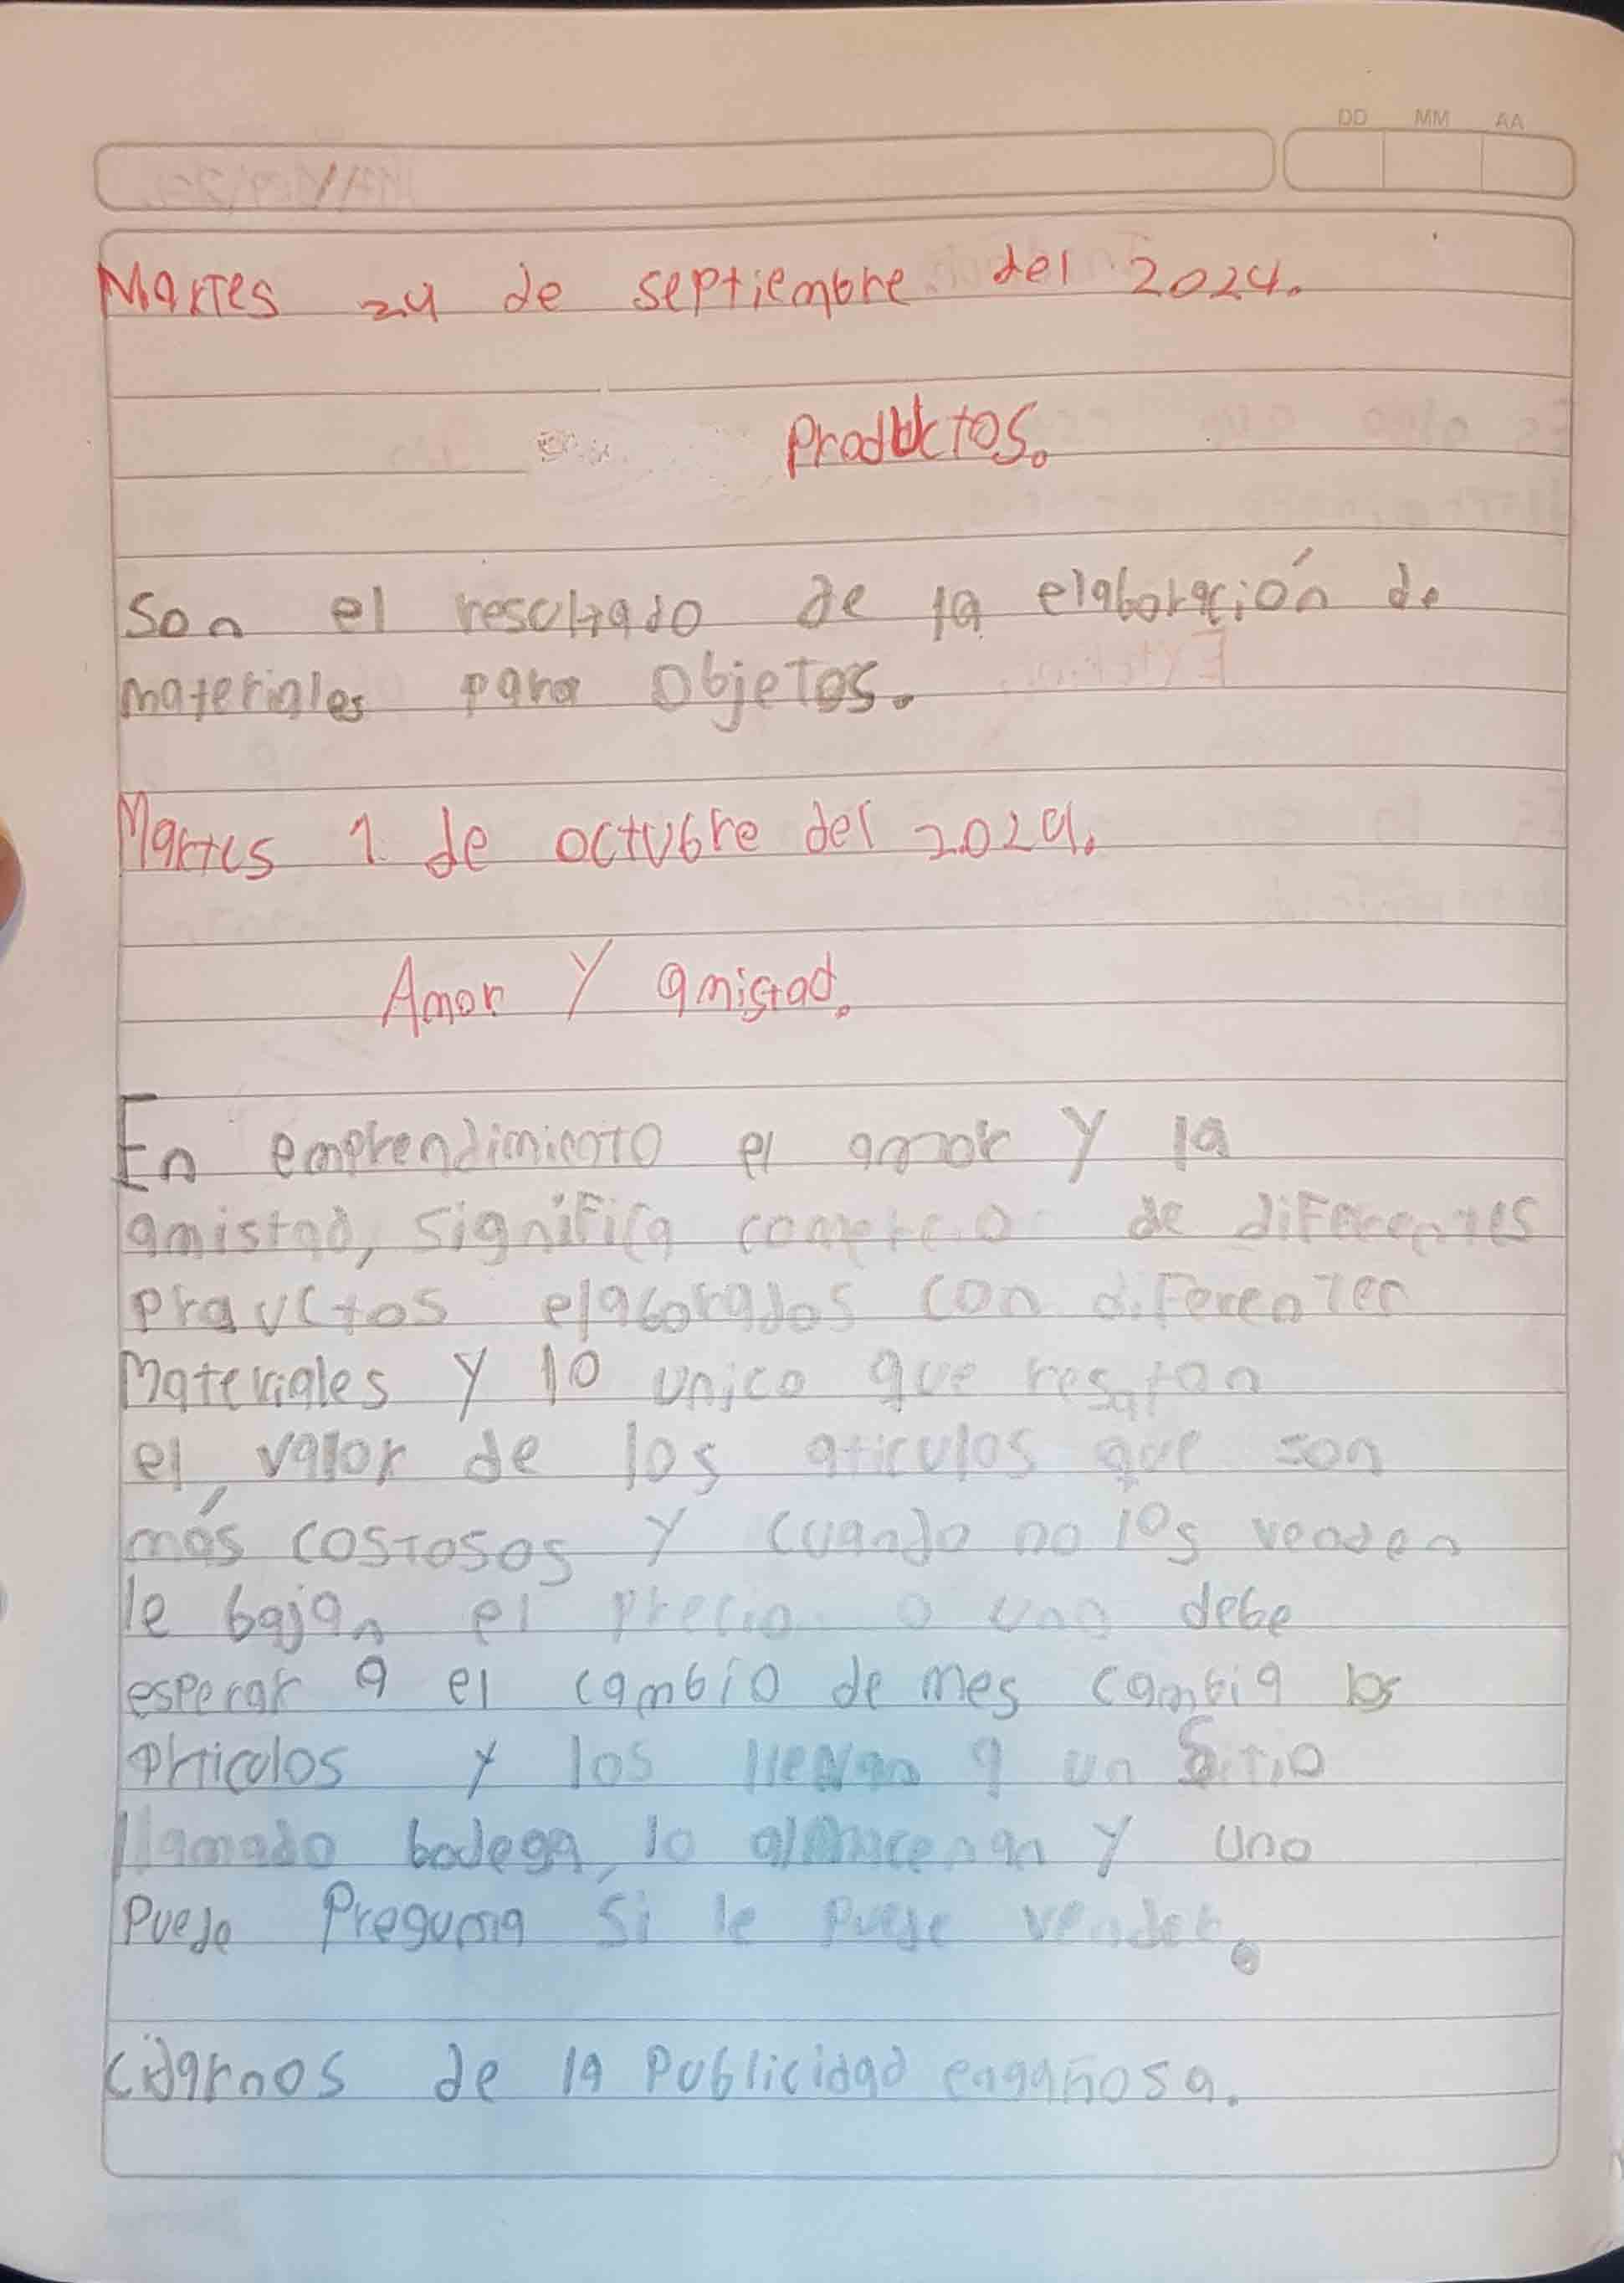 DD MM AA
Martes 24 de septiembre del 2024.
Productos.
Son el resultado de la elaboración de
materiales para objetos.
Martes 1 de octubre del 2024.
Amor y amistad.
En emprendimiento el amor y la
amistad, significa comercio de diferentes
prouctos elaborados con diferentes
Materiales y lo unico que resaltan
el valor de los aticulos que son
más costosos y cuando no los venden
le bajan el precio o uno debe
esperar a el cambio de mes cambia los
articulos y los llevan a un Sitio
llamado bodega, lo almacenan y uno
Puede Pregunta si le puede vender.
cidarnos de la Publicidad engañosa.